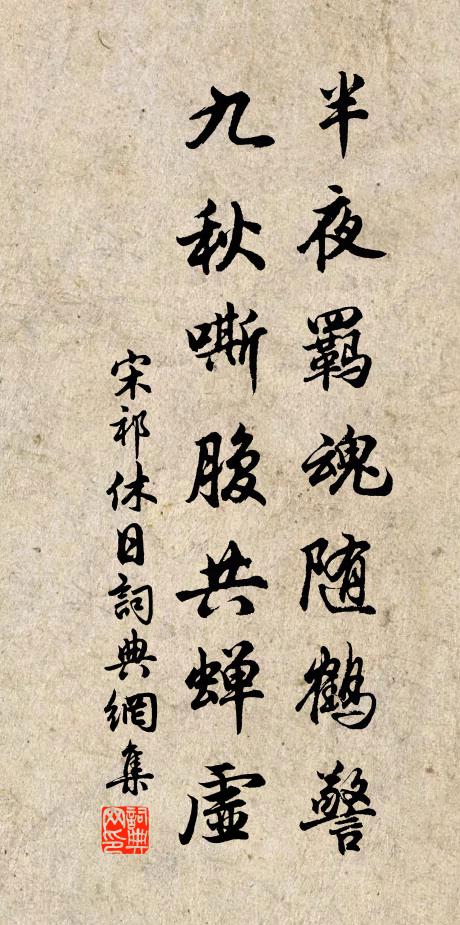 半夜羁魂随鹤警
九秋嘶腹共蝉虚
宋祁休日詞典網集
詞典网印